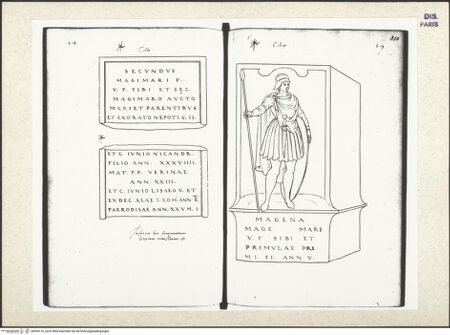 Cilie
SECVNDVS
MAGIMARI F.
V. F. SIBI ET SEC.
MAGIMARO AVCTO
MARI ET PARENTIBVS
ET EXORATO NEPOTI V. II.
ET C. IVNIO NICANDR.
FILIO ANN. XXXVIIII.
MAT. P.P. VERINAE
ANN. XXIII.
ET C. IVNIO LISAEO V. ET
EX DEC. ALAE I. COM. ANN
PAERODISAE ANN. XXV M. I
Cilie
MAGENA
MAGE MARI
V. F. SIBI ET
PRIMVLAE PRI
M I. FI. ANN. V.
DIS.
PARIS